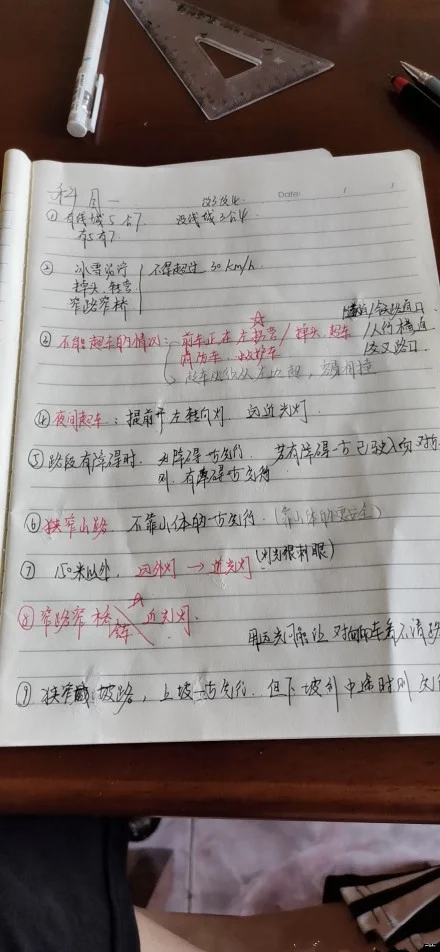 科目一
Date:
① 有线城5公7 没线城3公4
有5有7
② 冰雪泥泞 不得超过 30 km/h
掉头、转弯
窄路窄桥
③ 不能超车的情况: 前车正在左转弯/掉头、超车
隧道/铁路道口
/人行横道
/交叉路口
消防车、救护车
超车必须从左边超
④ 夜间超车: 提前开左转向灯 远近光灯
⑤ 路段有障碍时. 无障碍一方先行. 若有障碍一方已驶入而对方
则. 有障碍一方先行
⑥ 狭窄山路 不靠山体的一方先行.(靠山体的更安全)
⑦ 150米以外. 远光灯 → 近光灯 (灯光很刺眼)
⑧ 窄路窄桥 会车 近光灯.
用远光灯
⑨ 狭窄 坡路, 上坡一方先行. 但下坡到中途时则